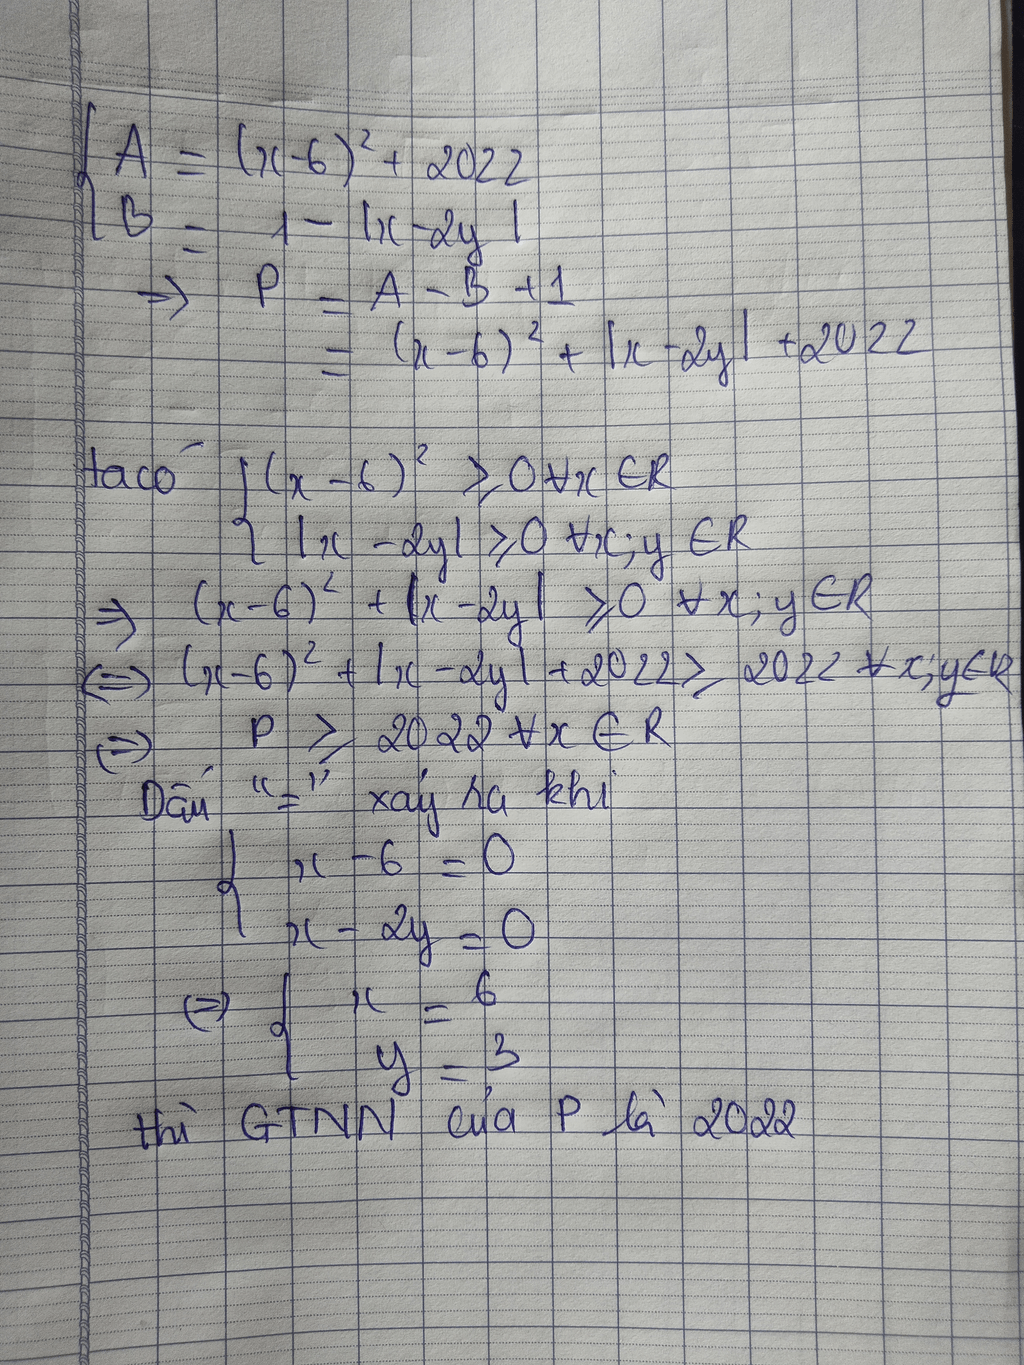 A = (x-6)² + 2022
B = 1 - |x-2y|
→ P = A - B + 1
= (x-6)² + |x-2y| + 2022
ta có (x-6)² ≥ 0 ∀x ∈ R
|x-2y| ≥ 0 ∀x;y ∈ R
⇒ (x-6)² + |x-2y| ≥ 0 ∀x;y ∈ R
⇔ (x-6)² + |x-2y| + 2022 ≥ 2022 ∀x;y ∈ R
⇔ P ≥ 2022 ∀x ∈ R
Dấu "=" xảy ra khi
x - 6 = 0
x - 2y = 0
⇔ x = 6
y = 3
thì GTNN của P là 2022